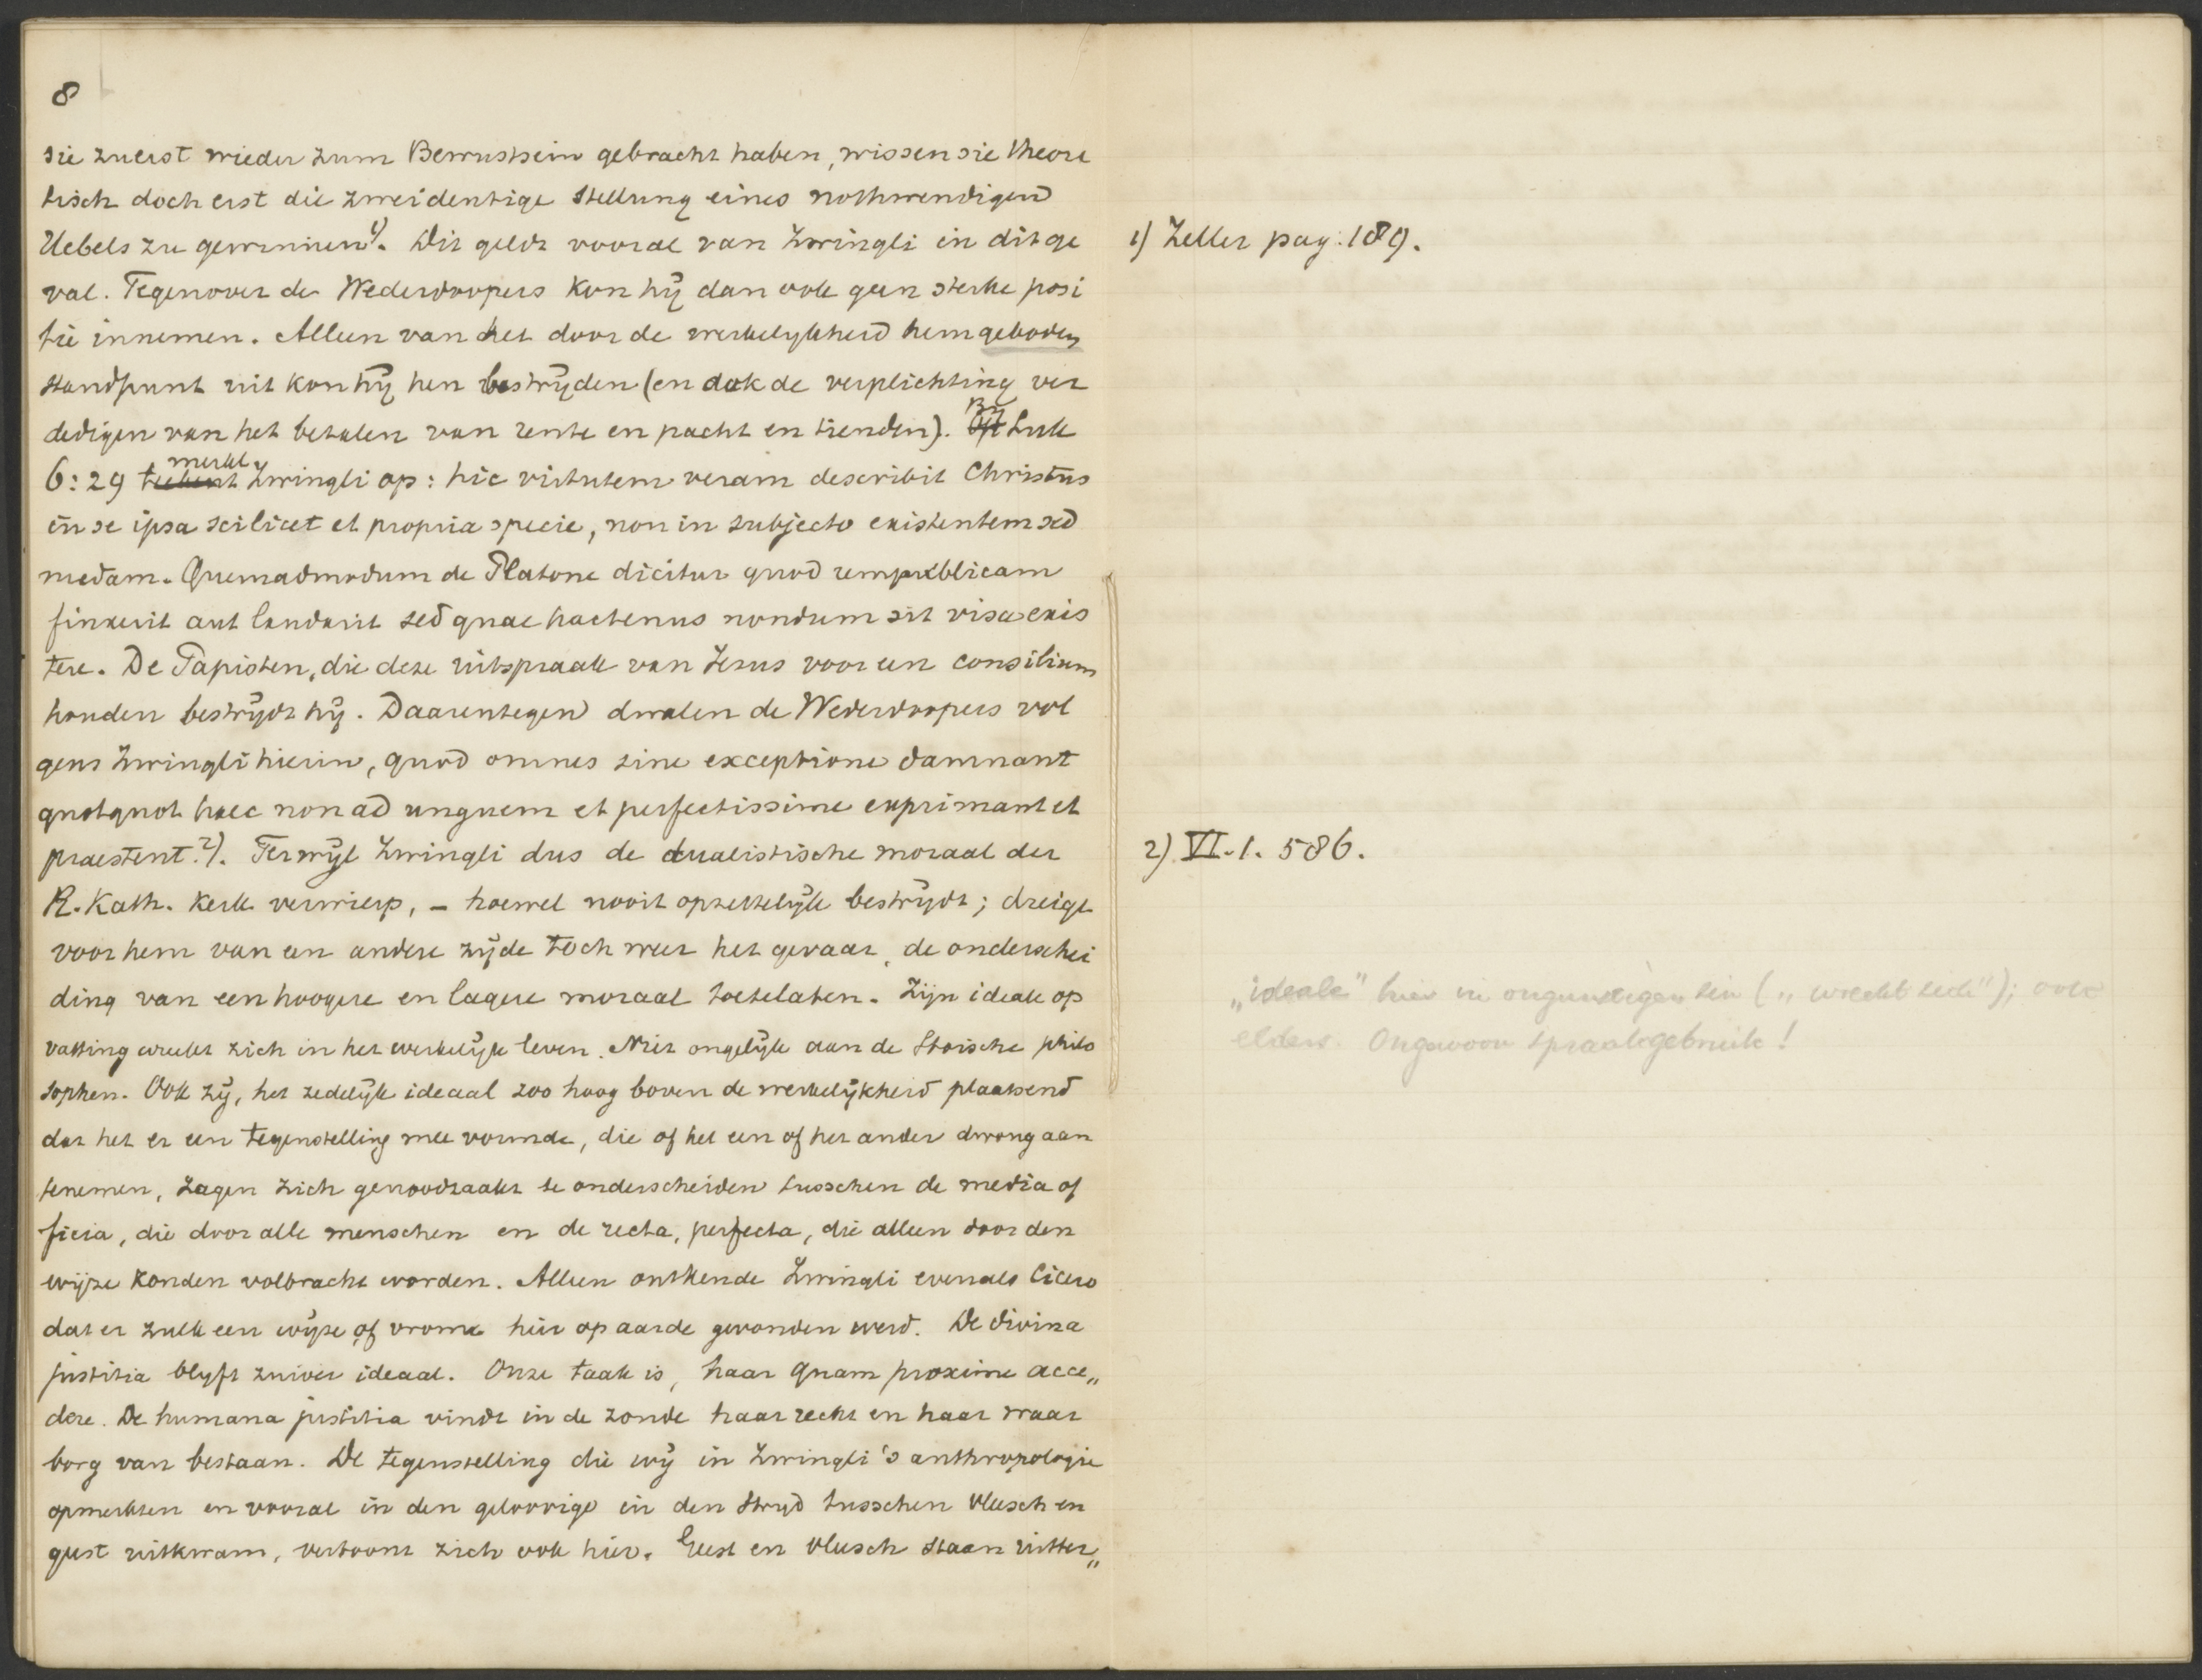 8
sie zuerst wieder zum Bewustsein gebracht haben, wissen sie theore
tisch doch erst die zweideutige Stellung eines nothwendigen
Uebels zu gewinnen 1). Dit geldt vooral van Zwingli in dit ge
val. Tegenover de Wederdoopers kon hij dan ook geen sterke posi
tie innemen. Alleen van het door de werkelykheid hem geboden
standpunt uit kon hij hen bestrijden (en ook de verplichting ver
dedigen van het betalen van rente en pacht en tienden). Bij Luk
6:29 merkt Zwingli op: hic virtutem veram describit Christus
in se ipsa scilicet et propria specie, non in subjecto existentem sed
nudam. Quemadmodum de Platone dicitur quod rempublicam
finxerit aut laudarit sed quae hactenus nondum sit visa exis
tere. De Papisten, die deze uitspraak van Jezus voor een consilium
houden bestrydt hij. Daarentegen dwalen de Wederdoopers vol
gens Zwingli hierin, quod omnes sine exceptione damnant
quotquot haec non ad unguem et perfectissime exprimant et
praestent. 2). Terwijl Zwingli dus de dualistische moraal der
R. Kath. Kerk verwierp, – hoewel nooit opzettelijk bestrydt; dreigt
voor hem van een andere zijde toch weer het gevaar, de onderschei
ding van een hoogere en lagere moraal toetelaten. Zijn ideale op
vatting wreekt zich in het werkelijk leven. Niet ongelijk aan de Stoische philo
sophen. Ook zij, het zedelijk ideaal zoo hoog boven de werkelijkheid plaatsend
dat het er een tegenstelling mee vormde, die of het een of het ander dwong aan
tenemen, zagen zich genoodzaakt te onderscheiden tusschen de media of
ficia, die door alle menschen en de recta, perfecta, die alleen door den
wijze konden volbracht worden. Alleen ontkende Zwingli evenals Cicero
dat er zulk een wijze of vrome hier op aarde gevonden werd. De divina
justitia blyft zuiver ideaal. Onze taak is, haar quam proxime acce„
dere. De humana justitia vindt in de zonde haar recht en haar waar
borg van bestaan. De tegenstelling die wij in Zwingli's anthropologie
opmerkten en vooral in den geloovige in den stryd tusschen vleesch en
geest uitkwam, vertoont zich ook hier. Geest en vleesch staan uitter„
1) Zeller pag. 189.
2) VI. 1. 586.
„ideale" hier in ongunstigen zin („wreekt zich"); ook
elders. Ongewoon spraakgebruik!